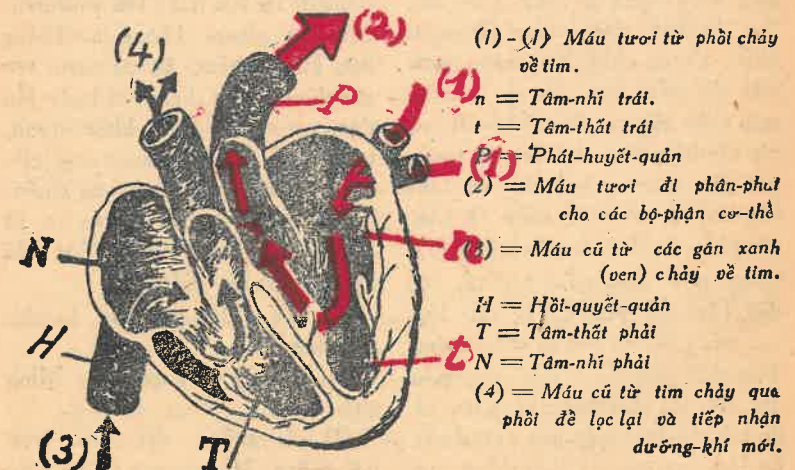 (4)
(2)
P
(1)
(1)
N
n
H
t
(3)
T
(1) - (1) Máu tươi từ phồi chảy
về tim.
n = Tâm-nhĩ trái.
t = Tâm-thất trái
P = Phát-huyết-quản
(2) = Máu tươi đi phân-phát
cho các bộ-phận cơ-thể
(3) = Máu cũ từ các gân xanh
(ven) chảy về tim.
H = Hồi-quyết-quản
T = Tâm-thất phải
N = Tâm-nhĩ phải
(4) = Máu cũ từ tim chảy qua
phồi để lọc lại và tiếp nhận
dưỡng-khí mới.